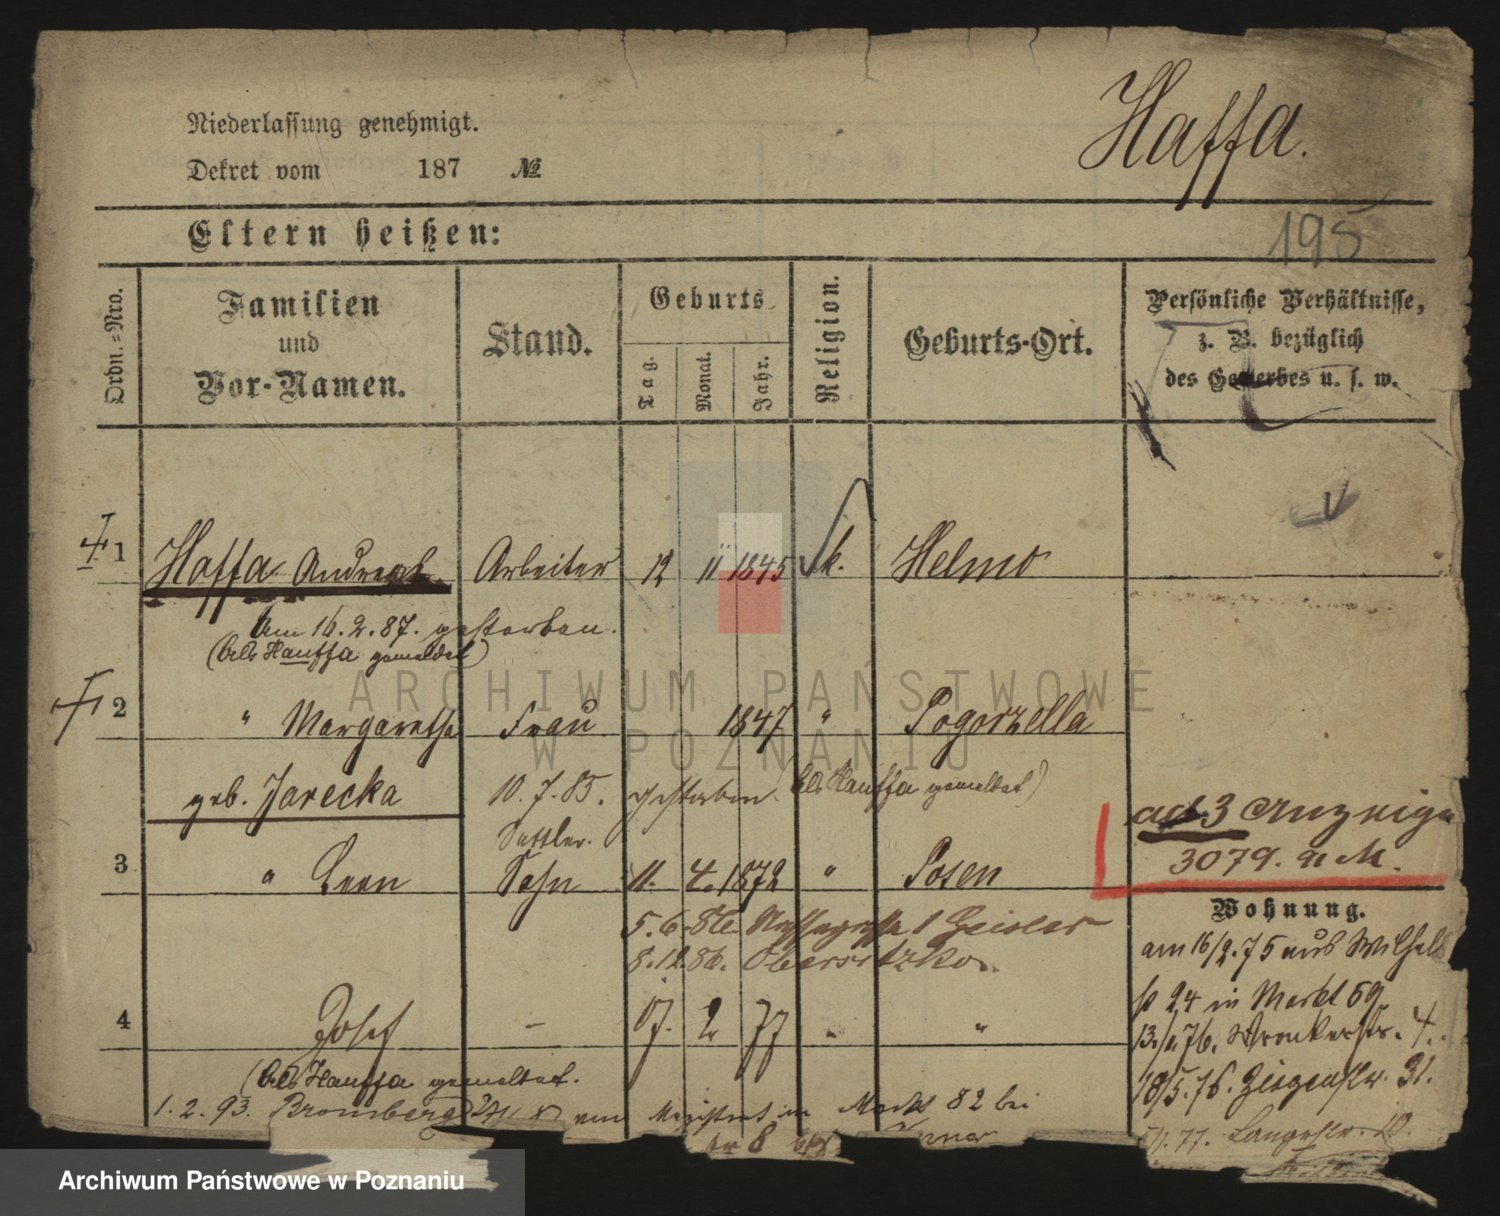 Niederlassung genehmigt.
Haffa.
Dekret vom 187 №
Eltern heißen:
195
Ordn.-Nro.
Familien und Vor-Namen.
Stand.
Geburts
Tag.
Monat.
Jahr.
Religion.
Geburts-Ort.
Persönliche Verhältnisse, z. B. bezüglich des Gewerbes u. s. w.
1 Haffa Andreas Arbeiter 12 11 1845 k. Helmo
Am 16.2.87. gestorben.
(als Hauffa gemeldet)
2 " Margaretha Frau 1847 " Pogorzella
geb. Jarecka 10.7.85. gestorben (als Hauffa gemeldet)
ad 3 Anzeige
3079.
Sattler.
3 " Leon Sohn 11. 4. 1872 " Posen
Wohnung.
5.6.86. 1 Geisler
8.12.86. Obersitzko.
am 16/2.75 aus Wilhel
24 in Markt 59.
4 Josef – 17. 2 77 " "
Wronkerstr. 4.
(als Hauffa gemeldet.
18/5.76. Ziegenstr. 31.
1.2.93. Bromberg Markt 82 bei
77. Langestr. 10.
8
ARCHIWUM PAŃSTWOWE
W POZNANIU
Archiwum Państwowe w Poznaniu